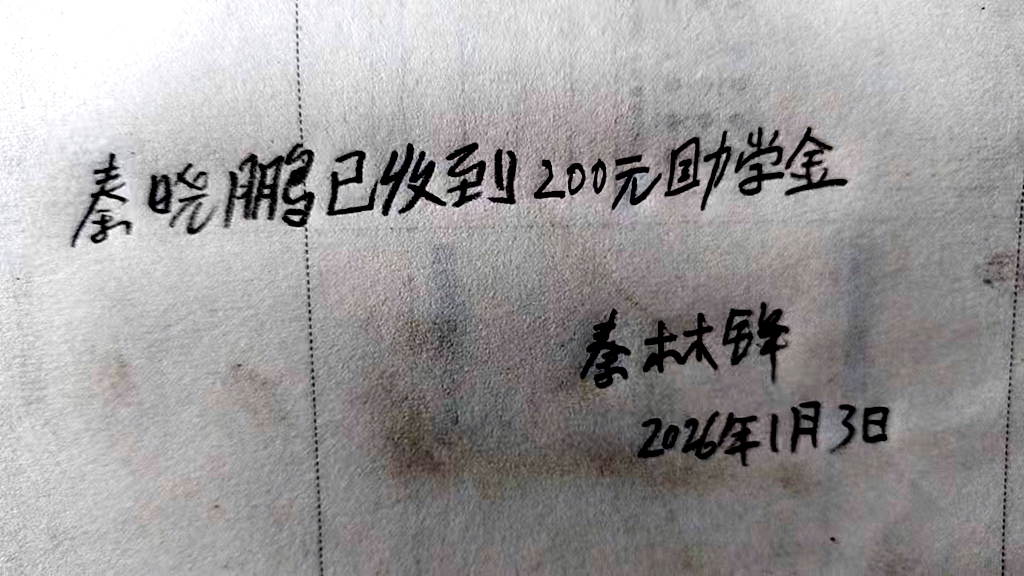 秦晓鹏已收到200元助学金
秦林锋
2026年1月3日